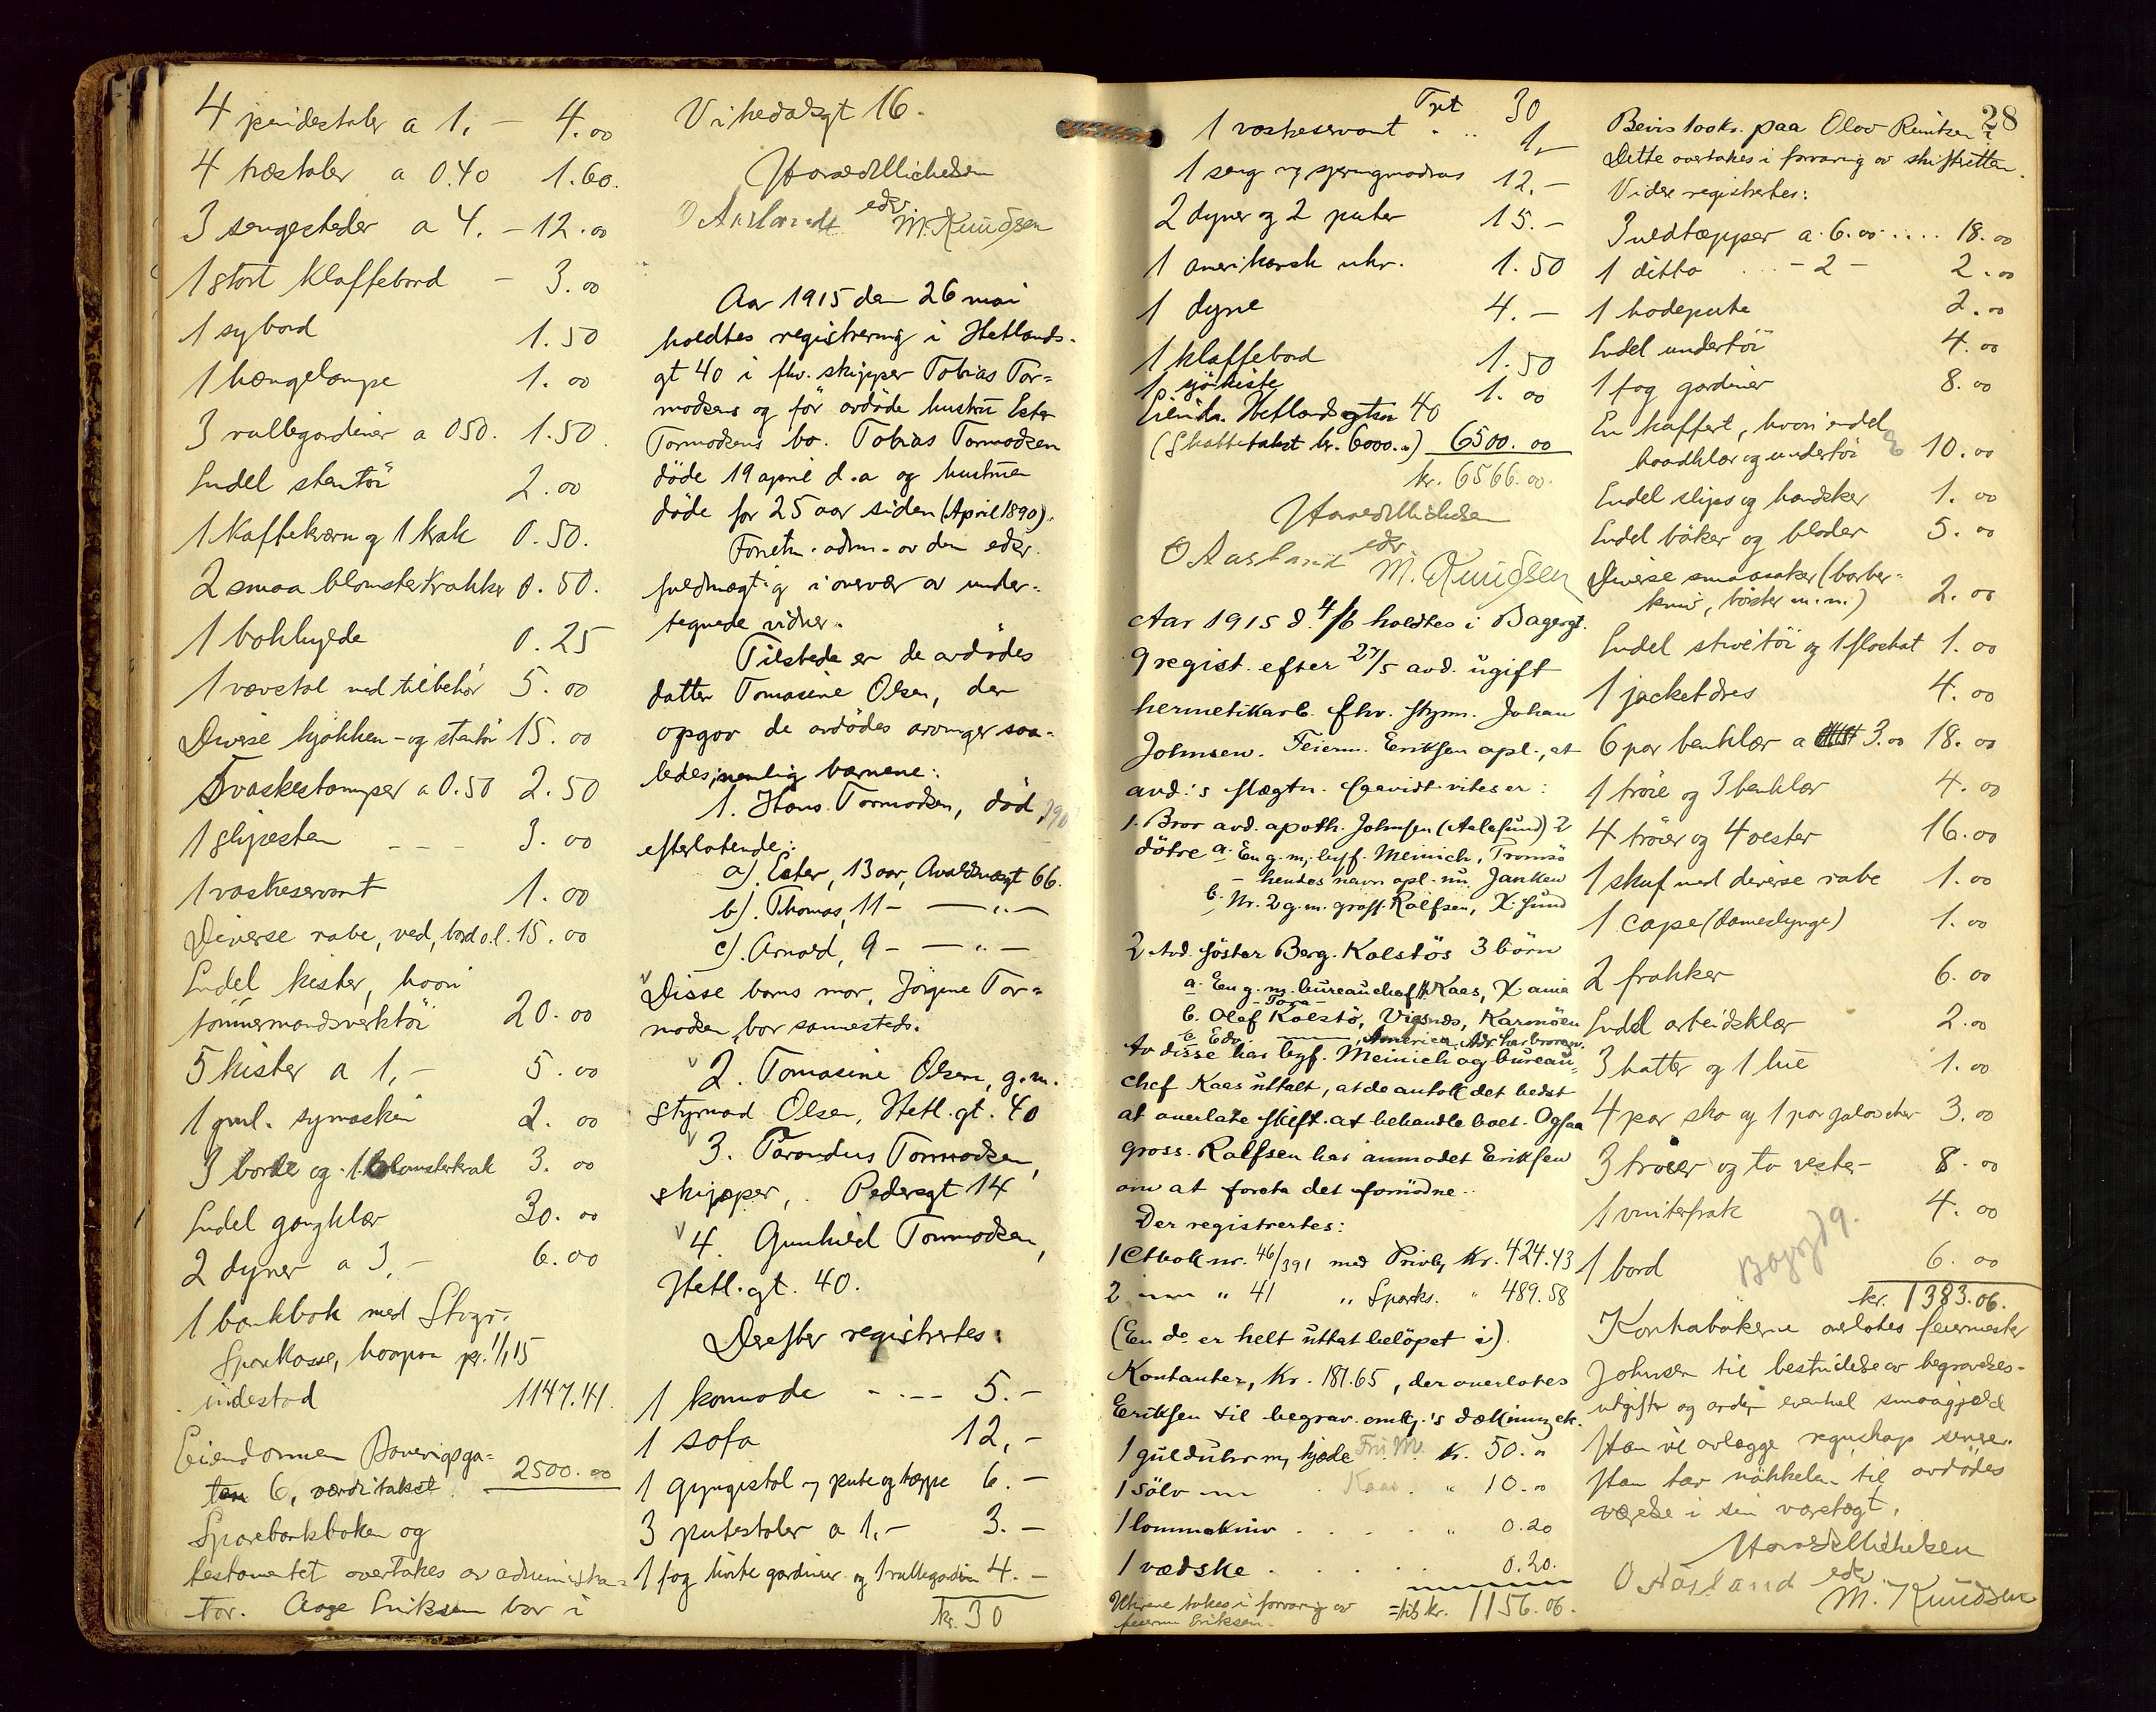 4 pindestoler a 1,- 4.00
4 træstoler a 0.40 1.60.
3 sengesteder a 4. - 12.00
1 stort klaffebord - 3.00
1 sybord 1.50
1 hængelampe 1.00
3 rullegardiner a 050. 1.50.
Endel stentöi 2.00
1 Kaffekværn og 1 krak 0.50.
2 smaa blomsterkrakker 0.50.
1 bokhylde 0.25
1 vævstol med tilbehör 5.00
Diverse kjökken- og stentöi 15.00
5 vaskestamper a 0.50 2.50
1 slipesten - - - 3.00
1 vaskeservant 1.00
Diverse rabe, ved, bord o.l. 15.00
Endel kister, hvori
tömmermandsverktöi 20.00
5 kister a 1,- 5.00
1 gml. symaskin 2.00
3 borde og 1 blomsterkrak 3.00
Endel gangklær 30.00
2 dyner a 3,- 6.00
1 bankbok med Stvgr.
Sparkasse, hvorpaa pr. 1/1 15
indestod 1147.41.
Eiendommen Banevigsga-
ten 6, værditakst. 2500.00
Sparebankboken og
testamentet overtakes av administra-
tor. Aage Eriksen bor i
Vihedalsgt 16.
Harald Michelsen
edsv.
O Aasland M. Knudsen
Aar 1915 den 26 mai
holdtes registrering i Hetlands-
gt 40 i fhv. skipper Tobias Tor-
modsens og för avdöde hustru Ester
Tormodsens bo. Tobias Tormodsen
döde 19 april d.a og hustruen
döde for 25 aar siden (April 1890).
Forretn. adm. av den edsv.
fuldmægtig i overvær av under-
tegnede vidner.
Tilstede er de avdödes
datter Tomasine Olsen, der
opgav de avdödes arvinger saa-
ledes, nemlig barnene:
1. Hans Tormodsen, död,
efterlatende:
a). Ester, 13 aar, Avaldsnesgt 66.
b). Thomas, 11 - — " —
c). Arnold, 9 - — " —
Disse barns mor, Jörgine Tor-
modsen, bor sammesteds.
2. Tomasine Olsen, g.m.
styrmand Olsen, Hetl.gt. 40
3. Tarandus Tormodsen,
skipper, Pedersgt 14
4. Gunhild Tormodsen,
Hetl.gt. 40.
Derefter registrertes:
1 komode - - - - 5.-
1 sofa 12,-
1 gyngestol og pute og tæppe 6.-
3 putestoler a 1,- 3.-
1 fag hvite gardiner og 1 rullegardin 4.-
kr. 30
Trpt 30
1 vaskeservant . .. 1,-
1 seng og sjerugmadras 12.-
2 dyner og 2 puter 15.-
1 amerikansk uhr. 1.50
1 dyne 4.-
1 klaffebord 1.50
1 sjökiste 1.00
Eiend. Hetlandsgten 40
(Skattetakst kr. 6000.") 6500.00
kr. 6566.00.
Harald Michelsen
edsv
O Aasland M. Knudsen
Aar 1915 d. 4/6 holdtes i Bagergt.
9 regist. efter 27/5 avd. ugift
hermetikarb. fhv. styrm. Johan
Johnsen. Feierm. Eriksen opl., at
avd.'s slægtn. saavidt vites er:
1. Bror avd. apoth. Johnsen (Aalesund) 2
dötre a. En g.m. lægf. Meinich, Tromsö
- hendes navn opl. nu. Janken
b. Nr. 2 g.m. gross. Rolfsen, K.sund
2 Avd. söster Berg. Kolstös 3 börn
a. En g.m. bureauchef H. Kaas, X.ania
- Tora -
b. Olaf Kolstö, Vigsnæs, Karmöen
c. Edv. — , America. Adr. har broren.
Av disse har lægf. Meinich og bureau-
chef Kaas uttalt, at de antok det bedst
at overlate skift. at behandle boet. Ogsaa
gross. Rolfsen har anmodet Eriksen
om at foreta det fornödne.
Der registrertes:
1 Ctbok nr. 46/391 med Privb, Kr. 424.43
2 — " 41 " Spark. " 489.58
(En do er helt uttat belöpet i).
Kontanter, Kr. 181.65, der overlotes
Eriksen til begrav. omk.'s dækning ek.
1 gulduhr m, kjæde Fru M. kr. 50."
1 sölv — Kaas. " 10.00
1 lommekniv . . . . " 0.20
1 vædske . . . . 0.20.
Uhrene takes i forvaring av =tils kr. 1156.06.
feierm Eriksen.
28
Bevis 100 kr. paa Olav Reintsen i
Dette overtakes i forvaring av skifteretten.
Videre registrertes:
3 uldtæpper a 6.00 .... 18.00
1 ditto ... - 2 - 2.00
1 hodepute 2.00
Endel undertöi 4.00
1 fag gardiner 8.00
En kuffert, hvori endel
haandklær og undertöi 10.00
Endel slips og handsker 1.00
Endel böker og blader 5.00
Diverse smaasaker (barber-
kniv, börster m.m.) 2.00
Endel strietöi og 1 floshat 1.00
1 jacketdres 4.00
6 par benklær a 3.00 18.00
1 tröie og 3 benklær 4.00
4 tröier og 4 vester 16.00
1 skuf med diverse rabe 1.00
1 cape (dameslynge) 1.00
2 frakker 6.00
Endel arbeidsklær 2.00
3 hatter og 1 lue 1.00
4 par sko og 1 par galoscher 3.00
3 tröier og to vester 8.00
1 vinterfrak 4.00
Bagergt 9.
1 bord 6.00
kr. 1383.06.
Kontrabökerne overlates feiermester
Johnsen til bestridelse av begravelses-
utgifter og andre eventuel smaagjæld
Han vil avlægge regnskap senere.
Han tar nökkelen til avdödes
værelse i sin varetægt.
Harald Michelsen
edsv
O Aasland
M. Knudsen